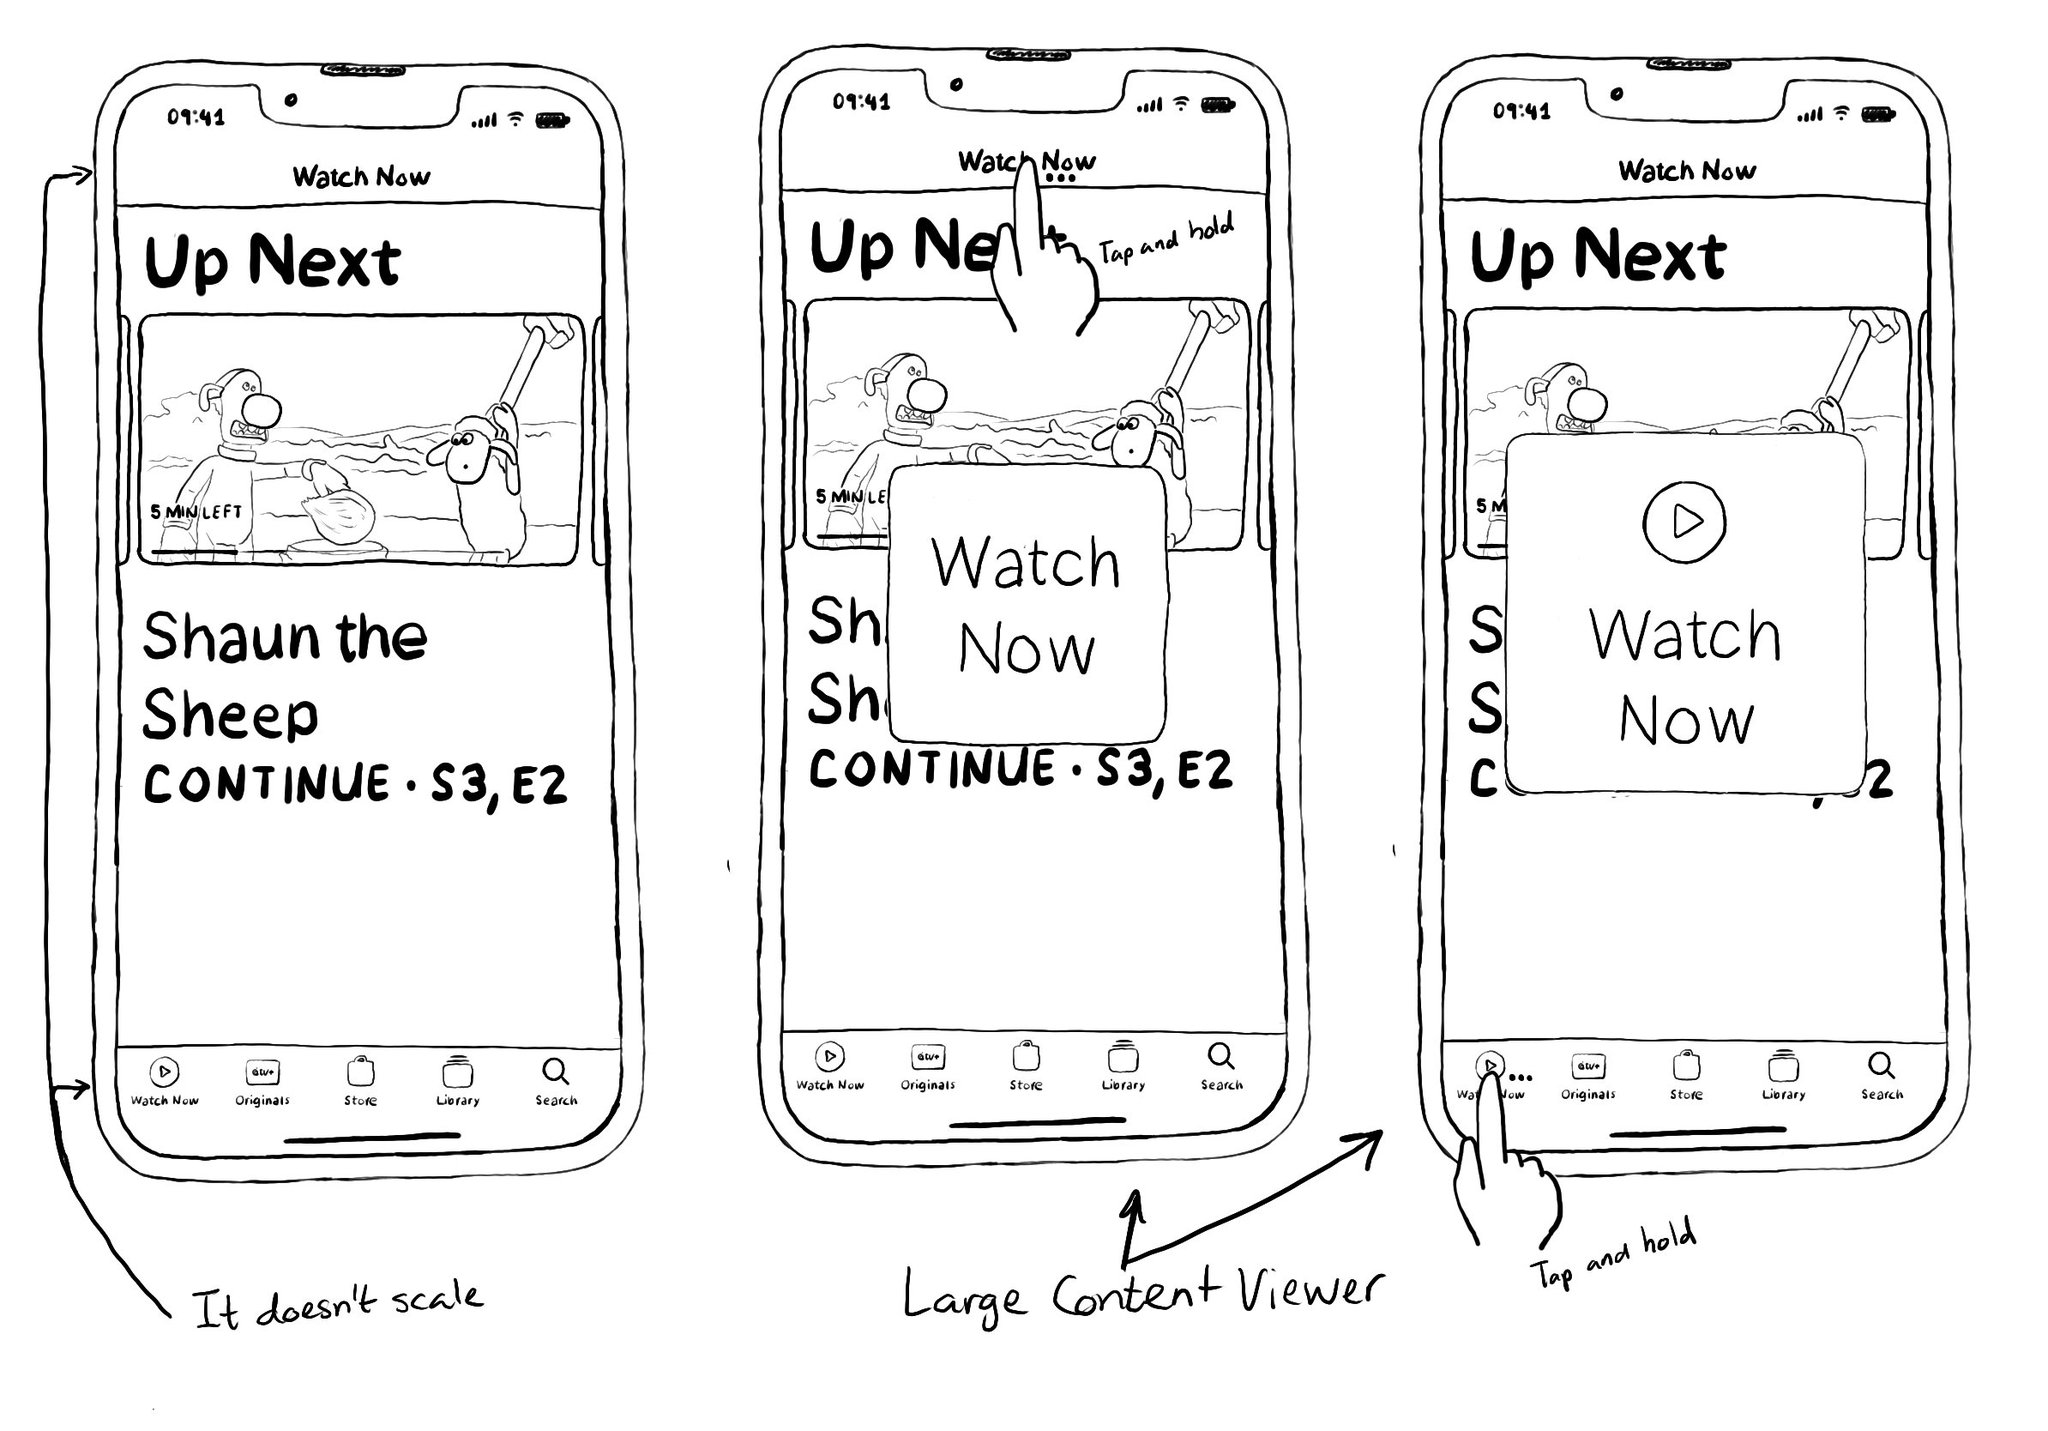 09:41
Watch Now
Up Next
5 MIN LEFT
Shaun the
Sheep
CONTINUE · S3, E2
Watch Now
Originals
Store
Library
Search
It doesn't scale
09:41
Watch Now
Up Ne
Tap and hold
5 MIN LE
Watch
Now
Sh
Sh
CONTINUE · S3, E2
Watch Now
Originals
Store
Library
Search
Large Content Viewer
09:41
Watch Now
Up Next
5 M
Watch
Now
S
S
C , 2
Wat Now
Originals
Store
Library
Search
Tap and hold